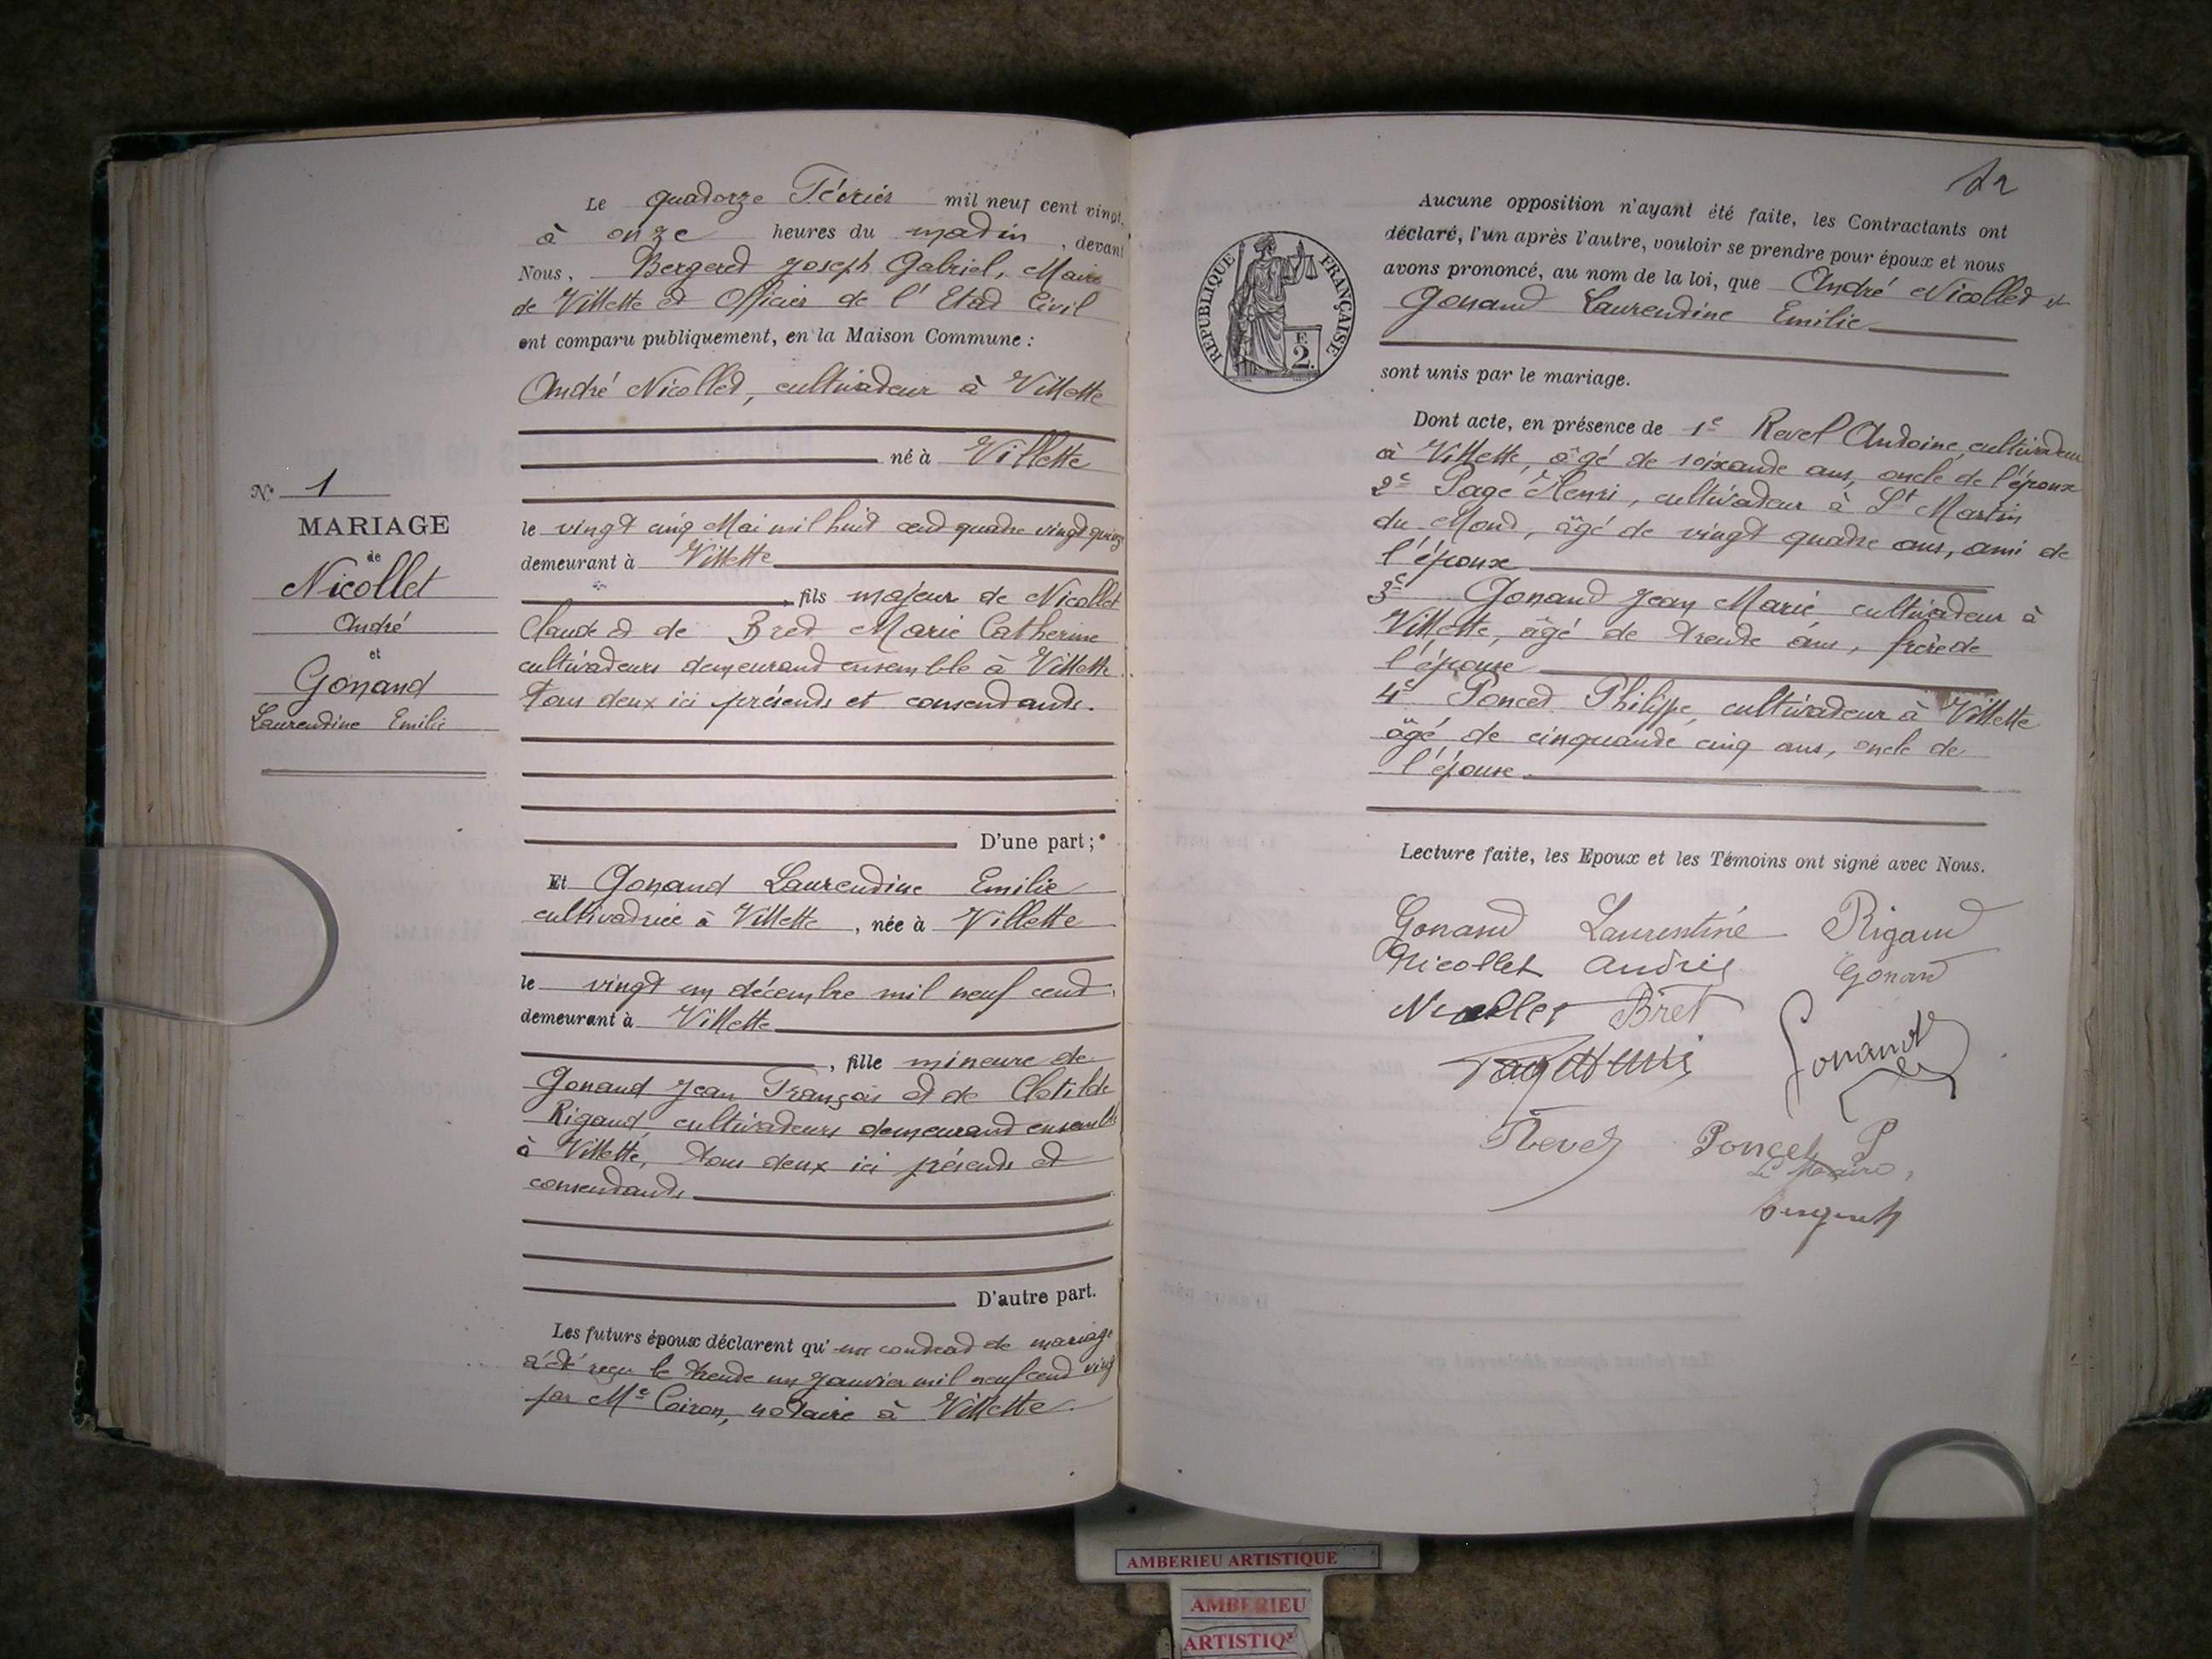 N° 1
MARIAGE
de
Nicollet
André
et
Gonand
Laurentine Emilie
Le quatorze Février mil neuf cent vingt,
à onze heures du matin, devant
Nous, Bergeret Joseph Gabriel, Maire
de Villette et Officier de l'Etat Civil
ont comparu publiquement, en la Maison Commune :
André Nicollet, cultivateur à Villette
né à Villette
le vingt cinq Mai mil huit cent quatre vingt quinze
demeurant à Villette
, fils majeur de Nicollet
Claude et de Bret Marie Catherine
cultivateurs demeurant ensemble à Villette.
Tous deux ici présents et consentants.
D'une part ;
Et Gonand Laurentine Emilie
cultivatrice à Villette, née à Villette
le vingt un décembre mil neuf cent,
demeurant à Villette
, fille mineure de
Gonand Jean François et de Clotilde
Rigaud cultivateurs demeurant ensemble
à Villette, tous deux ici présents et
consentants
D'autre part.
Les futurs époux déclarent qu'un contrat de mariage
a été reçu le trente un janvier mil neuf cent vingt
par Me Coiron, notaire à Villette.
RÉPUBLIQUE FRANÇAISE
2
Aucune opposition n'ayant été faite, les Contractants ont
déclaré, l'un après l'autre, vouloir se prendre pour époux et nous
avons prononcé, au nom de la loi, que André Nicollet et
Gonand Laurentine Emilie
sont unis par le mariage.
Dont acte, en présence de 1e Revel Antoine, cultivateur
à Villette, âgé de soixante ans, oncle de l'époux
2e Page Henri, cultivateur à St Martin
du Mont, âgé de vingt quatre ans, ami de
l'époux
3e Gonand Jean Marie, cultivateur à
Villette, âgé de trente ans, frère de
l'épouse
4e Poncet Philippe, cultivateur à Villette
âgé de cinquante cinq ans, oncle de
l'épouse.
Lecture faite, les Epoux et les Témoins ont signé avec Nous.
Gonand Laurentine Rigaud
Nicollet André Gonand
Nicollet Bret
Page Henri Gonand
Revel Poncet P
Le Maire,
Bergeret
AMBERIEU ARTISTIQUE
AMBERIEU
ARTISTIQ